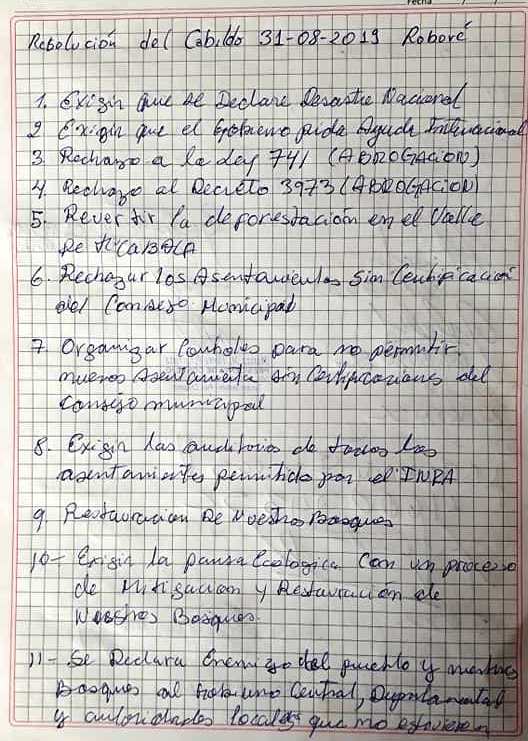 Fecha
Resolución del Cabildo 31-08-2019 Roboré
1. Exigir que se Declare Desastre Nacional
2 Exigir que el Gobierno pida Ayuda Internacional
3. Rechazo a la Ley 741 (ABROGACION)
4 Rechazo al Decreto 3973 (ABROGACION)
5. Revertir la deforestación en el Valle
De TUCABACA
6. Rechazar los Asentamientos Sin Certificación
del Consejo Municipal
7. Organizar Controles para no permitir
nuevos Asentamiento sin Certificaciones del
Consejo municipal
8. Exigir las auditorias de todos los
asentamientos permitido por el INRA
9. Restauracion De Nuestros Bosques
10- Exigir la pausa Ecologica Con un proceso
de Mitigacion y Restauración de
Nuestros Bosques.
11- Se Declara Enemigo del pueblo y nuestros
Bosques al Gobierno Central, Departamental
y autoridades locales que no estuvieron